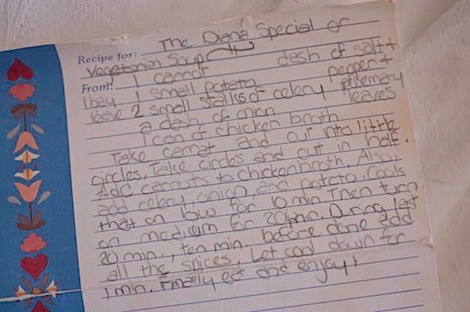 Recipe for: The Diana Special or
Vegetarian Soup
From: 1 carrot dash of salt +
1 bay 1 small potato pepper +
leave 2 small stalks of celery rosemary
a dash of onion leaves
1 can of chicken broth
Take carrot and cut into little
circles, Take circles and cut in half.
Add carrots to chicken broth. Also,
add celery, onion and potato. Cook
that on low for 10 min. Then turn
on medium for 20 min. During last
20 min., ten min. before done add
all the spices. Let cool down for
1 min. Finally eat and enjoy!